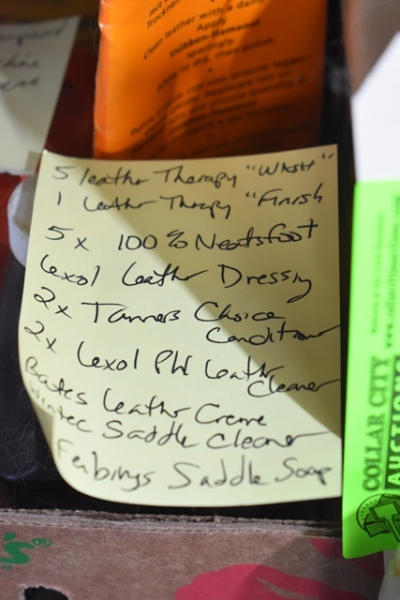 Clean leather with a
Apply
Stübben-Hamanol
sparingly.
5 leather Therapy "WASH"
1 Leather Therapy "Finish
5 x 100% Neatsfoot
Lexol Leather Dressing
2x Tanners Choice
Conditioner
2x Lexol PH Leather
Cleaner
Bates Leather Creme
Wintec Saddle Cleaner
Feibings Saddle Soap
COLLAR CITY
AUCTIONS